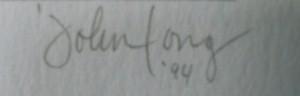 John Long
'94